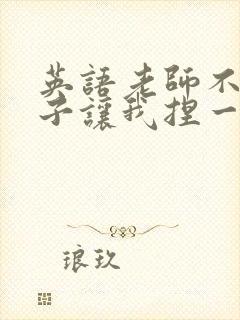 英語老師不
子讓我捏一
琅玖